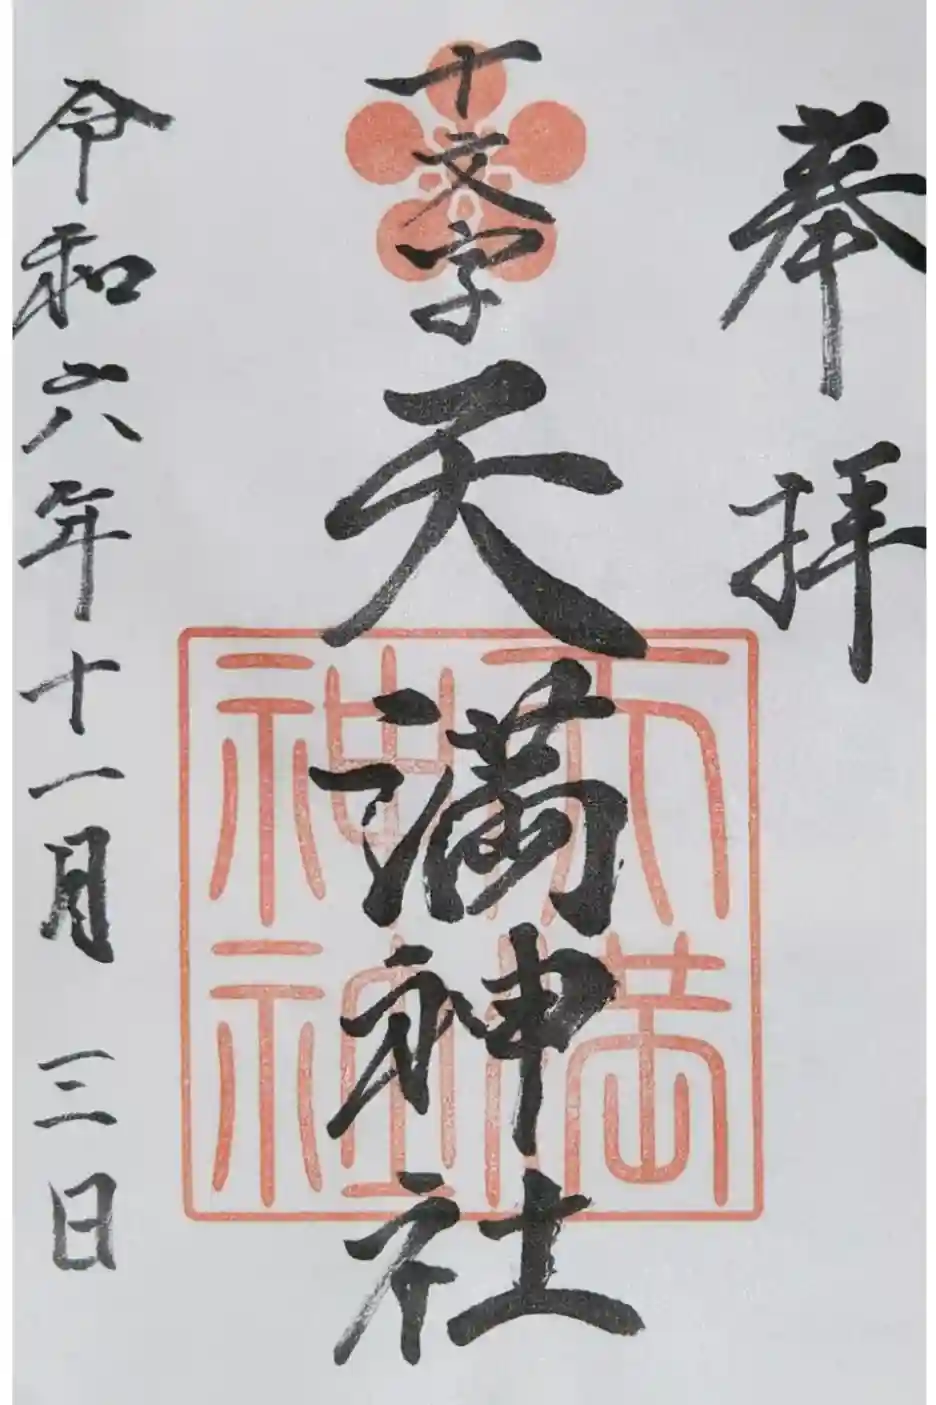 奉拝
十文字天満神社
天満
神社
令和六年十一月三日